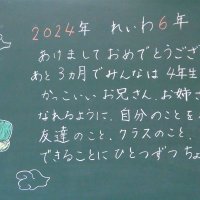 2024年 れいわ6年
あけましておめでとうござ
あと3ヵ月でみんなは4年生
かっこいいお兄さん、お姉さ
なれるように、自分のことを
友達のこと、クラスのこと、
できることにひとつずつちょ